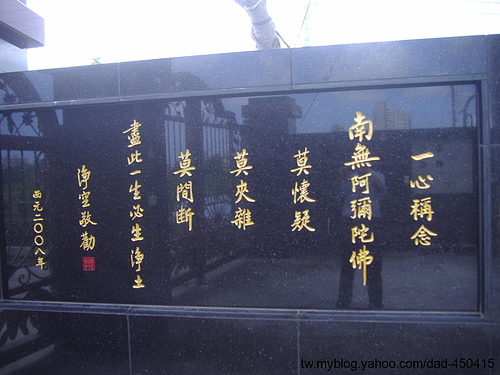 一心稱念
南無阿彌陀佛
莫懷疑
莫夾雜
莫間斷
盡此一生必生淨土
淨空敬勸
西元二〇〇八年
tw.myblog.yahoo.com/dad-450415